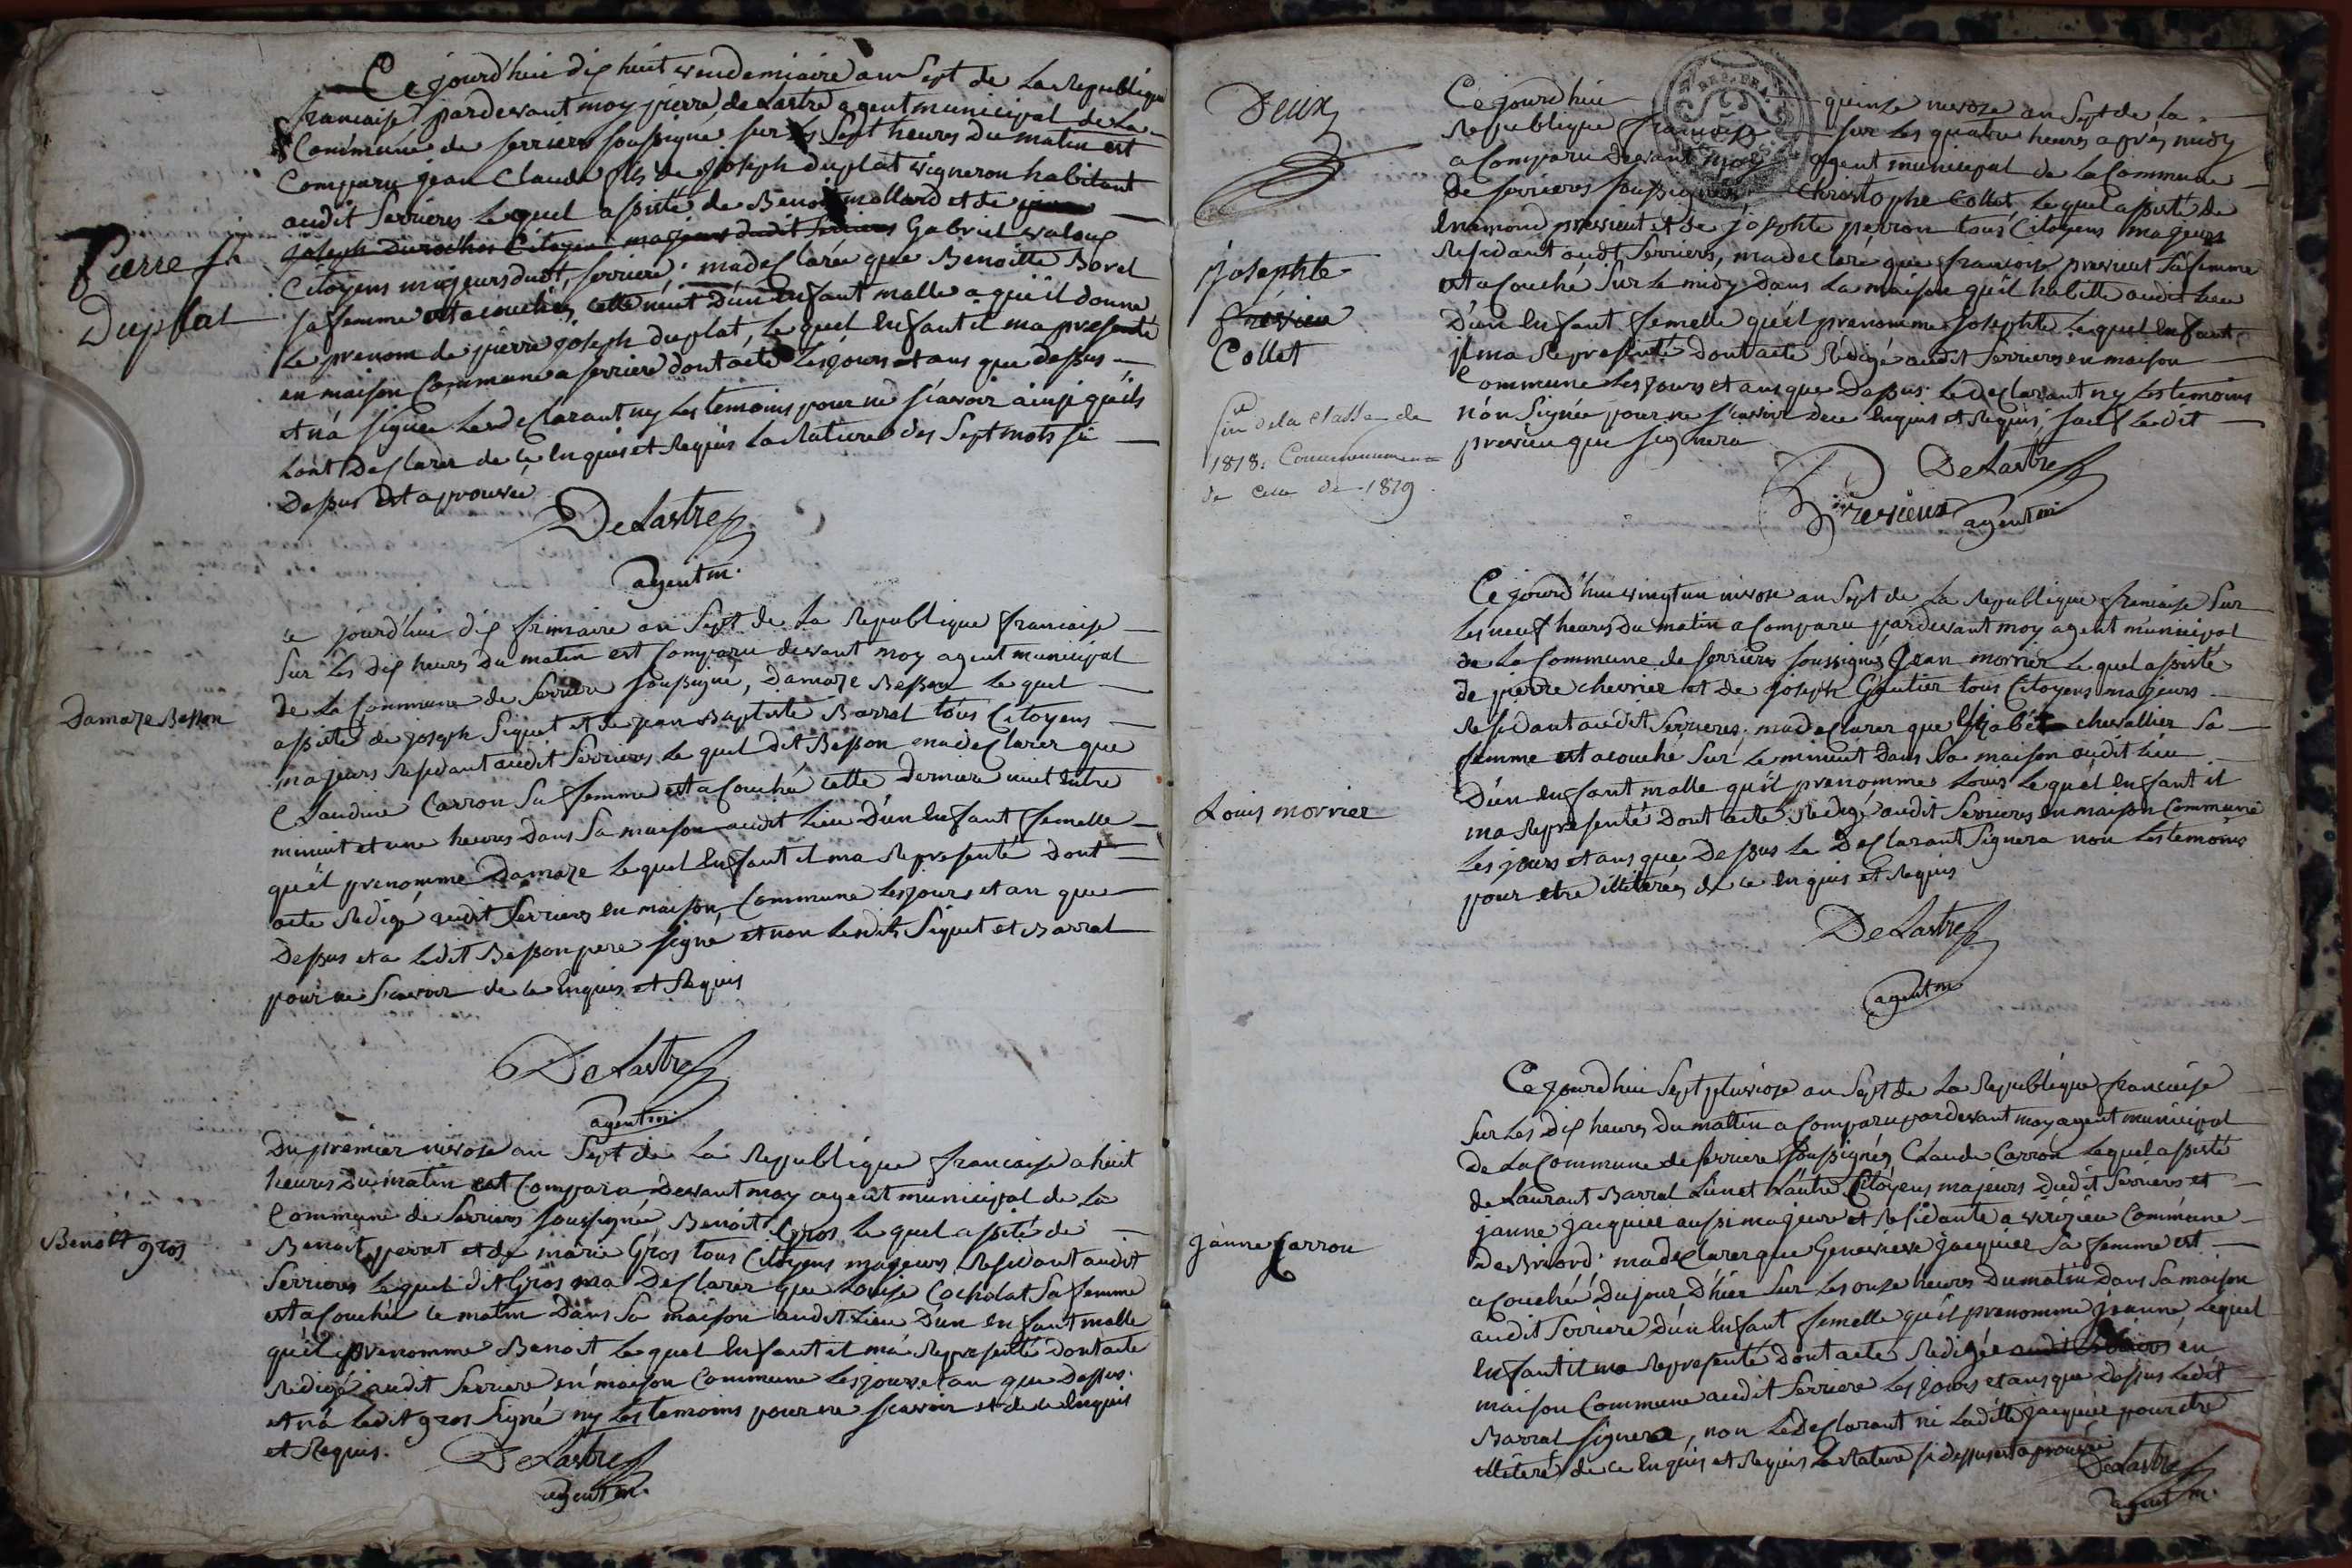 Ce jourd'hui dix huit vendemiaire an Sept de La Republique
francaise pardevant moy pierre deLastre agent municipal de La
Commune de serrieres soussigné sur les Sept heures du matin est
Comparu jean Claude fils de joseph duplat vigneron habitant
audit Serrieres Lequel assisté de Benoit mollard et de
joseph Citoyen majeurs dudit Serrieres Gabriel valoux
Citoyens majeurs dudt serriere, ma declarée que Benoitte Borel
Pierre jh
Duplat
sa femme est acouchée cette nuit D'un enfant malle a qui il donne
Le prenom de pierre joseph duplat, Le quel enfant il ma presenté
en maison Commune a serriere dont acte Les jours et ans que dessus
et n'a signée Le declarant ny Les temoins pour ne scavoir ainsi qu'ils
L'ont Declarer de ce enquis et Requis La Rature des Sept mots si
dessus est aprouvée
DeLastre
agent m.
ce jourd'hui dix frimaire an Sept de La Republique francaise
Sur Les dix heures Du matin est Comparu devant moy agent municipal
de La Commune de Serriere soussigné, Damaze Besson Le quel
Damaze Besson
assisté de joseph Siquet et de jean Baptiste Barral tous Citoyens
majeurs Residant audit Serrieres Le quel dit Besson ma declarer que
Claudine Carron Sa femme est acouchée cette derniere nuit entre
minuit et une heures dans Sa maison audit Lieu D'un enfant femelle
qu'il prenomme Damaze Le quel enfant il ma Representé Dont
acte Redigé audit Serrieres en maison Commune Les jours et an que
Dessus et a Ledit Besson pere signé et non Lesdits Siquet et Barral
pour ne scavoir de ce enquis et Requis
DeLastre
agent m.
Du premier nivose an Sept de La Republique francaise a huit
heures Du matin est Comparu Devant moy agent municipal de La
Commune de Serrieres soussigné, Benoit Gros Le quel assisté de
Benoit gros
Benoit perrat et de marie Gros tous Citoyens majeurs Residant audit
Serrieres Le quel dit Gros ma Declarer que Louise Cocholat Sa femme
est acouchée ce matin Dans Sa maison audit Lieu D'un enfant malle
qu'il prenomme Benoit Le quel enfant il ma Representé Dont acte
Redigé audit Serriere en maison Commune Les jours et an que Dessus.
et n'a Ledit gros Signé ny Les temoins pour ne scavoir et de ce enquis
et Requis.
DeLastre
agent m.
Deux
Ce jourd'hui quinze nivose an Sept de La
Republique francaise sur Les quatre heures apres midy
a Comparu devant moy agent municipal de La Commune
de serrieres soussigné Christophe Collet Le quel assisté de
Enemond previeut et de josephte perron tous Citoyens majeurs
Josephte
Previeu
Collet
Residant audt Serrieres, ma declaré que francoise previeut Sa femme
est acouché Sur Le midy Dans La maison qu'il habitte audit Lieu
D'un Enfant femelle qu'il prenomme Josephte Lequel enfant
il ma Representé Dont acte Rédigé audit Serrieres en maison
Commune Les jours et ans que Dessus. Le declarant ny Les temoins
n'on Signée pour ne scavoir de ce enquis et Requis, sauf Le dit
previeu que signera
fin de la classe de
1818. Commencement
de celle de 1819.
DeLastre
Previeux agent m
Ce jourd'hui vingt un nivose an Sept de La Republique francaise Sur
Les neuf heures Du matin a Comparu pardevant moy agent municipal
de La Commune de serrieres soussignés Jean morrier Le quel assisté
de pierre chevrier et de joseph Gautier tous Citoyens majeurs
Residant audit Serrieres, ma declarer que Elizabét chevallier Sa
femme est acouché Sur Le minuit Dans Sa maison audit Lieu
D'un enfant malle qu'il prenomme Louis Lequel enfant il
Louis morrier
ma Representé Dont acte Redigé audit Serrieres en maison Commune
Les jours et ans que Dessus Le Declarant Signera non Les temoins
pour etre illiterés de ce enquis et Requis
DeLastre
agent m
Ce jourd'hui Sept pluviose an Sept de La Republique francaise
Sur Les Dix heures Du mattin a Comparu pardevant moy agent municipal
De La Commune de serriere soussignés Claude Carron Lequel assisté
de Laurant Barral Lun et L'autre Citoyens majeurs Dudit Serrieres et
janne jacquier aussi majeure et Residante a verizieu Commune
Janne Carron
De Briord. ma declarer que Genevieve jacquier Sa femme est
acouchée Du jour D'hier Sur Les onze heures Du matin Dans Sa maison
audit Serriere D'un enfant femelle qu'il prenomme jeanne Lequel
enfant il ma Representé dont acte Redigée audit en
maison Commune audit Serriere Les jours et ans que Dessus Ledit
Barral signera, non Le Declarant ni Laditte jacquier pour etre
illiteré de ce enquis et Requis La Rature si dessus est aprouvée
DeLastre
agent m.